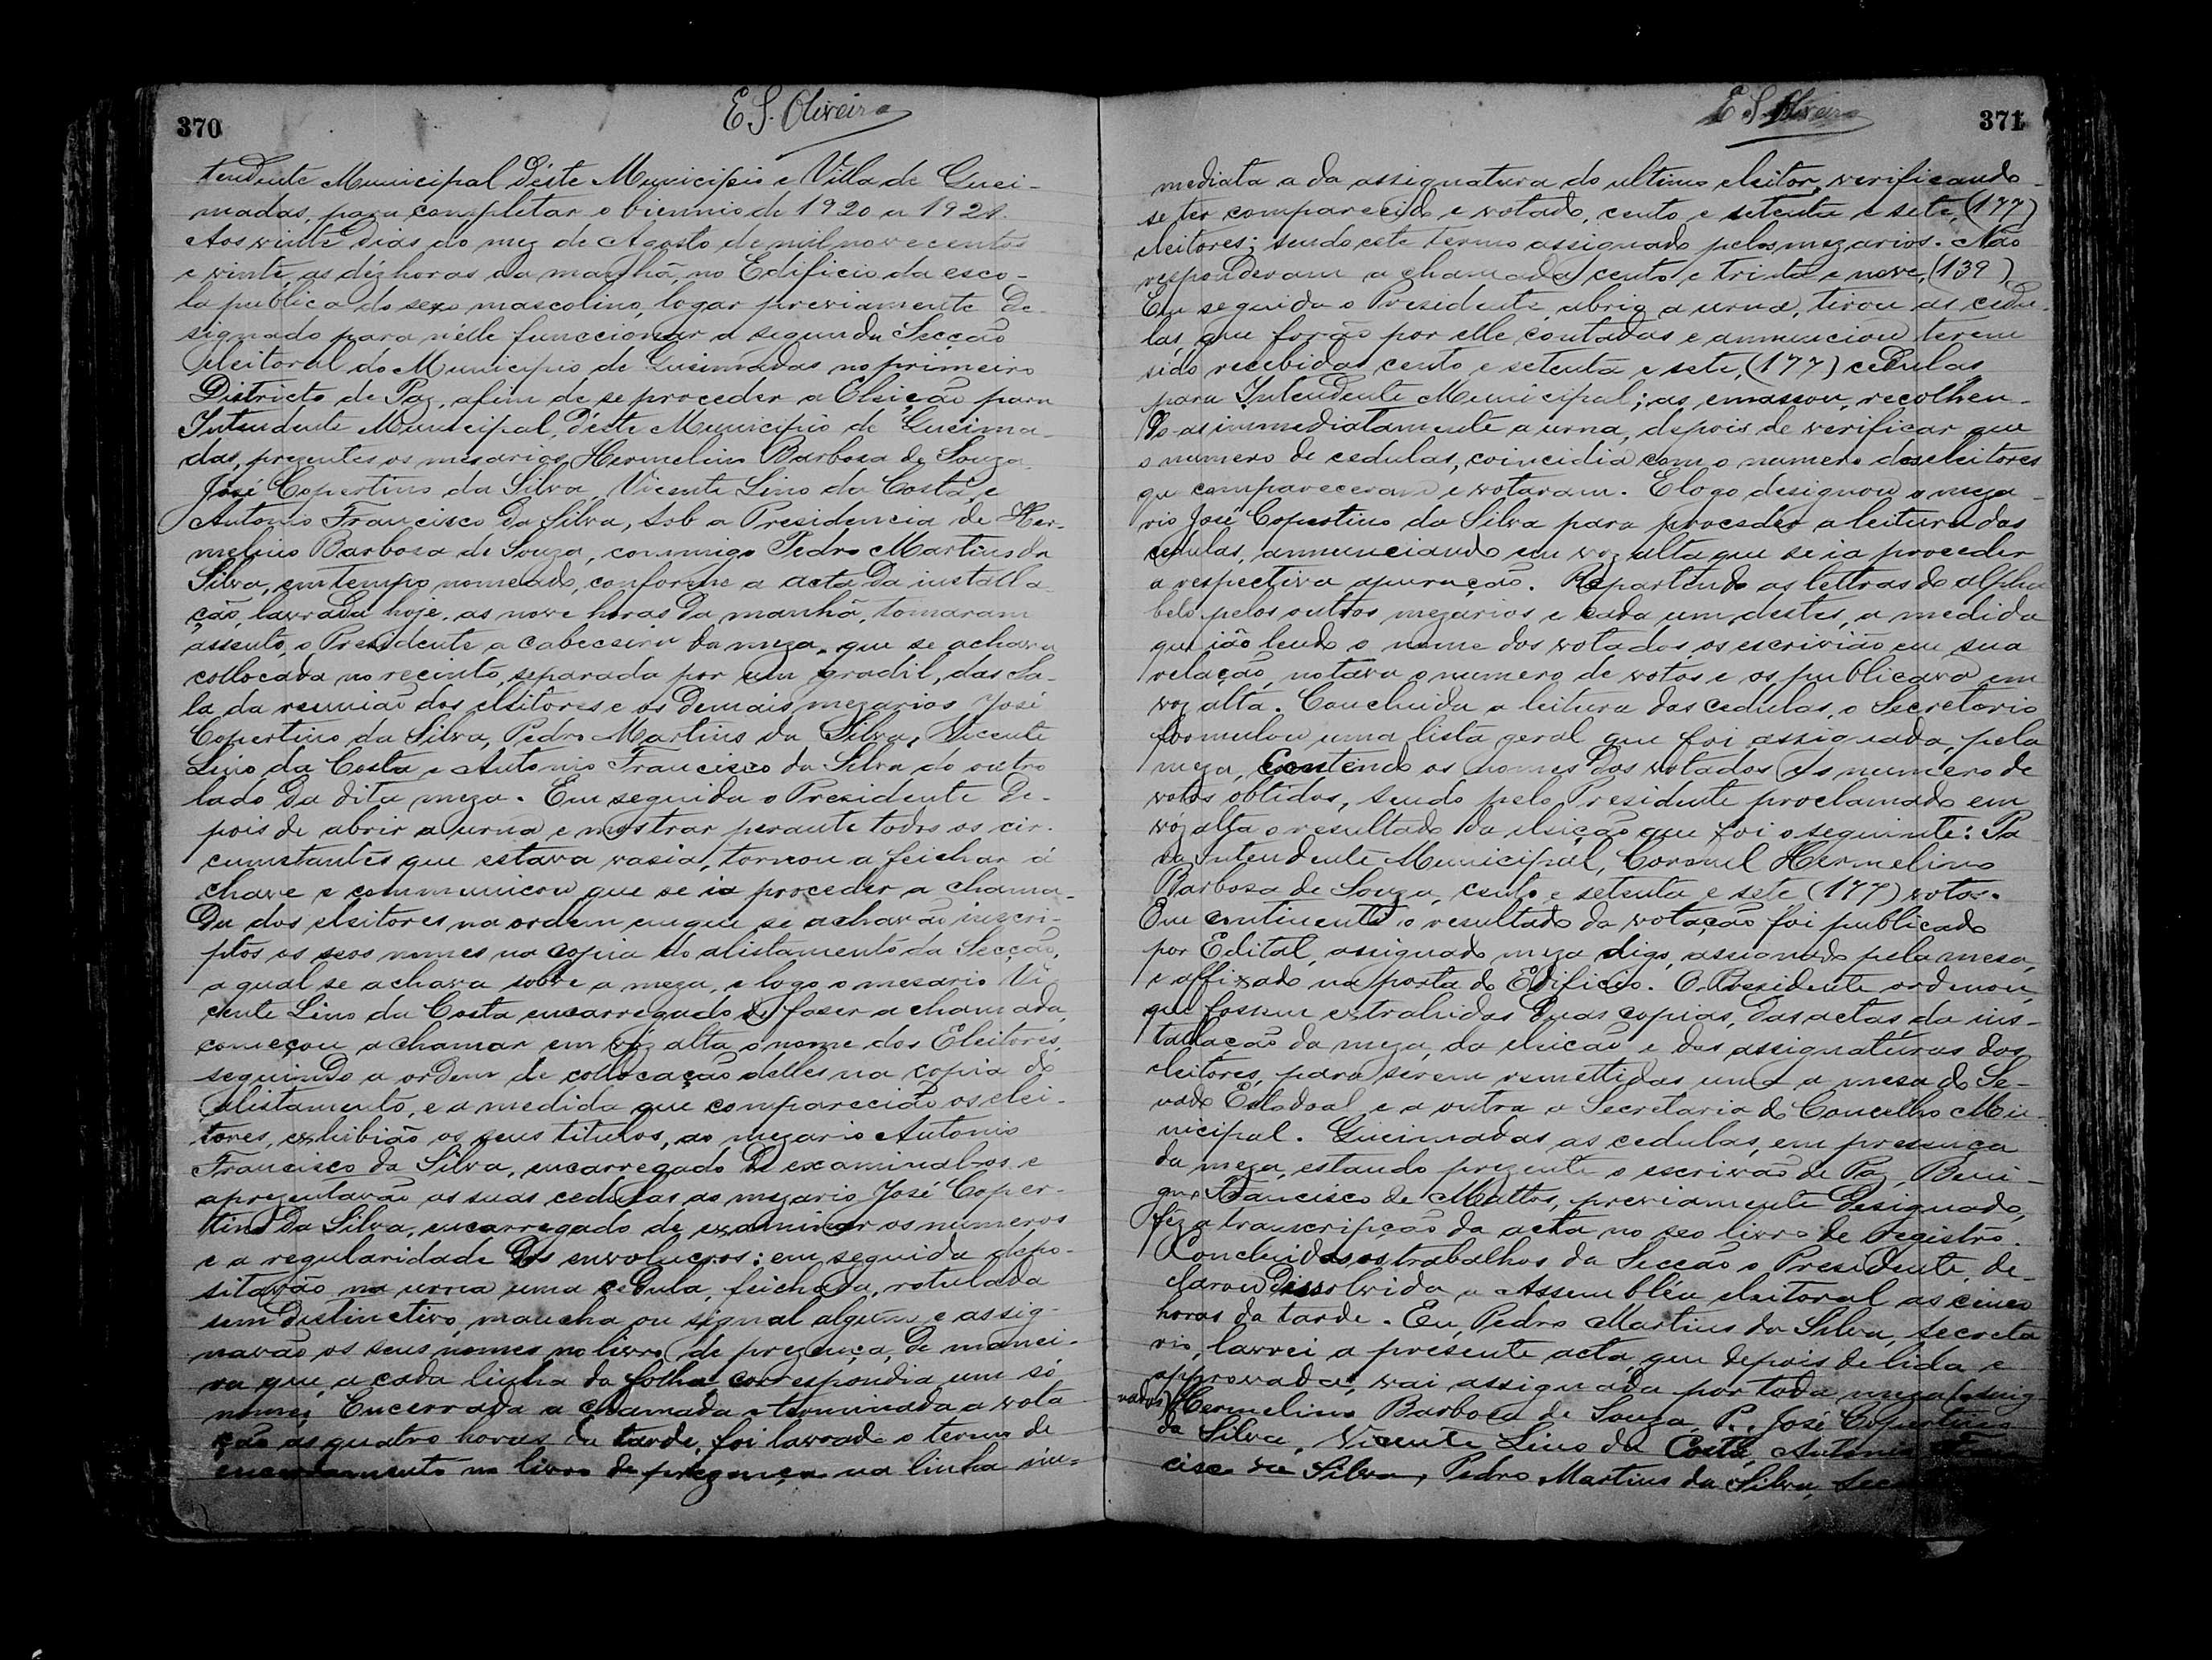 370
E S. Oliveira
tendente Municipal déste Municipio e Villa de Quei-
madas, para completar o biennio de 1920 a 1921.
Aos vinte dias do mez de Agosto de mil nove centos
e vinte, as déz horas da manhã, no Edificio da esco-
la publica do sexo mascolino, logar previamente de-
signado para n'élle funccionar a segunda Secção
eleitoral do Municipio de Queimadas no primeiro
Districto de Paz, afim de se proceder a Eleição para
Intendente Municipal, déste Municipio de Queima-
das, prezentes os mesarios, Hermelino Barbosa de Souza,
José Copertino da Silva, Vicente Lino da Costa, e
Antonio Francisco da Silva, sob a Presidencia de Her-
melino Barbosa de Souza, commigo Pedro Martins da
Silva, em tempo nomeado, conforme a acta da installa-
ção, lavrada hoje, as nove horas da manhã, tomaram
assento, o Presidente a cabeceira da meza, que se achava
collocada no recinto, separada por um gradil, das Sa-
la da reunião dos eleitores e os demais mezarios José
Copertino da Silva, Pedro Martins da Silva, Vicente
Lino da Costa e Antonio Francisco da Silva do outro
lado da dita meza. Em seguida o Presidente de-
pois de abrir a urna e mostrar perante todos os cir-
cumstantes que estava vasia, tornou a feichar á
chave e communicou que se ia proceder a chama-
da dos eleitores na ordem em que se achavão inscri-
ptos os seos nomes na copia do alistamento da Secção,
a qual se achava sobre a meza, e logo o mesario Vi
cente Lino da Costa encarregado de faser a chamada,
começou a chamar em vóz alta o nome dos Eleitores,
seguindo a ordem de collocação delles na copia do
alistamento, e a medida que comparecião os elei-
tores, exhibião os seus titulos, ao mezario Antonio
Francisco da Silva, encarregado de examinal-os e
aprezentavão as suas cedulas ao mezario José Coper-
tino da Silva, encarregado de examinar os numeros
e a regularidade dos envolucros: em seguida depo-
sitavão na urna uma cedula, feichada, rotulada
sem distinctivo, mancha ou signal algum e assig-
navão os seus nomes no livro de prezença, de manei-
ra que, a cada linha da folha, correspondia um só
nome. Encerrada a chamada e terminada a vota
ção as quatro horas da tarde, foi lavrado o termo de
encerramento no livro de prezença na linha im-
371
E S. Oliveira
mediata a da assignatura do ultimo eleitor, verificando-
se ter comparecido e votado, cento e setenta e sete, (177)
eleitores; sendo este termo assignado pelos mezarios. Não
responderam a chamada cento e trinta e nove, (139)
Em seguida o Presidente, abrio a urna, tirou as cedu-
las, que forão por elle contadas e annunciou terem
sido recebidas cento e setenta e sete, (177) cedulas
para Intendente Municipal; as emassou, recolhen-
do-as immediatamente a urna, depois de verificar que
o numero de cedulas, coincidia com o numero dos eleitores
que compareceram e votaram. E logo designou o meza-
rio José Copertino da Silva para proceder a leitura das
cedulas, annunciando em voz alta que se ia proceder
a respectiva apuração. Repartendo as lettras do alpha
beto pelos outros mezarios, e cada um destes, a medida
que ião lendo o nome dos votados, os escrivião em sua
relação, notava o numero de votos e os publicava em
voz alta. Concluida a leitura das cedulas, o Secretario
formulou uma lista geral que foi assignada, pela
meza, contendo os nomes dos votados e o numero de
votos obtidos, sendo pelo Presidente proclamado em
vóz alta o resultado da eleição que foi o seguinte: Pa
ra Intendente Municipal, Coronel Hermelino
Barbosa de Souza, cento e setenta e sete (177) votos.
Em continente o resultado da votação foi publicado
por Edital, assignado meza digo, assignado pela mesa,
e affixado na porta do Edificio. O Presidente ordenou,
que fossem extrahidas duas copias, das actas da ins-
tallação da meza, da eleição e das assignaturas dos
eleitores, para serem remettidas uma a mesa do Se-
nado Estadoal e a outra a Secretaria do Concelho Mu-
nicipal. Queimadas as cedulas, em presença
da meza, estando prezente o escrivão de Paz, Beni-
gno Francisco de Mattos, previamente designado,
fêz a transcripção da acta no seo livro de registro.
Concluidos os trabalhos da Secção o Presidente, de-
clarou dissolvida a Assembléa eleitoral as cinco
horas da tarde. Eu, Pedro Martins da Silva, secreta
rio, lavrei a presente acta, que depois de lida e
approvada, vai assignada por toda meza (assig
nados) Hermelino Barbosa de Souza, P., José Copertino
da Silva, Vicente Lino da Costa, Antonio Fran
cisco da Silva, Pedro Martins da Silva,